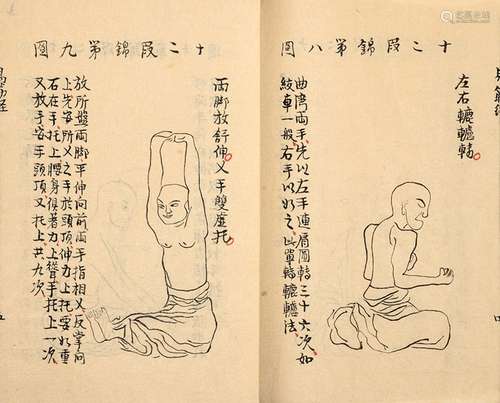 十二段錦第八圖
左右轆轤轉
曲灣兩手先以左手連肩圓轉三十六次如
絞車一般右手以如之此單轉轆轤法
十二段錦第九圖
兩脚放舒伸叉手雙虛托
放所盤兩脚平伸向前兩手指相叉反掌向
上先安所叉之手於頭頂伸力上托要如重
石在手托上腰身俱着力上聳手托上一次
又放下安手頭頂又托上共九次